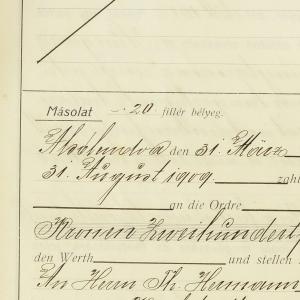 Másolat 20 fillér bélyeg.
Alsólendva den 31. März
31. August 1909. zahl
an die Ordre
Kronen Zweihundert
den Werth und stellen
An Herrn Th. Hermann